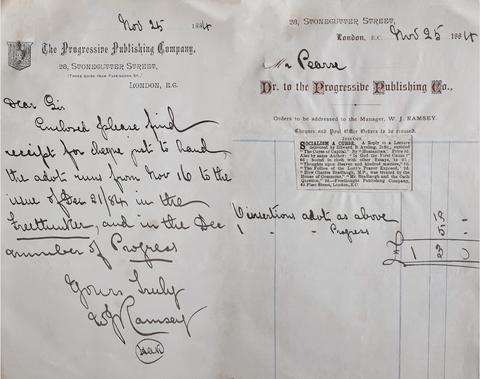 Nov 25 1884
The Progressive Publishing Company,
28, STONECUTTER STREET,
(THREE DOORS FROM FARRINGDON ST.)
LONDON, E.C.
Dear Sir
Enclosed please find
receipt for cheque just to hand,
the advt runs from Nov 16 to the
issue of Dec 21/84 in the
Freethinker, and in the Dec
number of Progress
Yours truly
W J Ramsey
28, STONECUTTER STREET,
London, E.C. Nov 25 1884
Mr Pearse
Dr. to the Progressive Publishing Co.,
Orders to be addressed to the Manager, W. J. RAMSEY.
Cheques and Post Office Orders to be crossed.
JUST OUT.
SOCIALISM A CURSE. A Reply to a Lecture
delivered by Edward B. Aveling, D.Sc., entitled
"The Curse of Capital." By "Humanitas." Price 3d.
Also by same Author: "Is God the First Cause?"
6d; bound in cloth with other Essays, 1s. 6d.
"Thoughts upon Heaven and kindred matters," 3d.
"The Follies of the Lord's Prayer Exposed," 2d.
"How Charles Bradlaugh, M.P., was treated by the
House of Commons." "Mr. Bradlaugh and the Oath
Question."—Freethought Publishing Company,
63 Fleet Street, London, E.C.
6 insertions advt as above 18 -
1 " " Progress 5 -
1 3 0